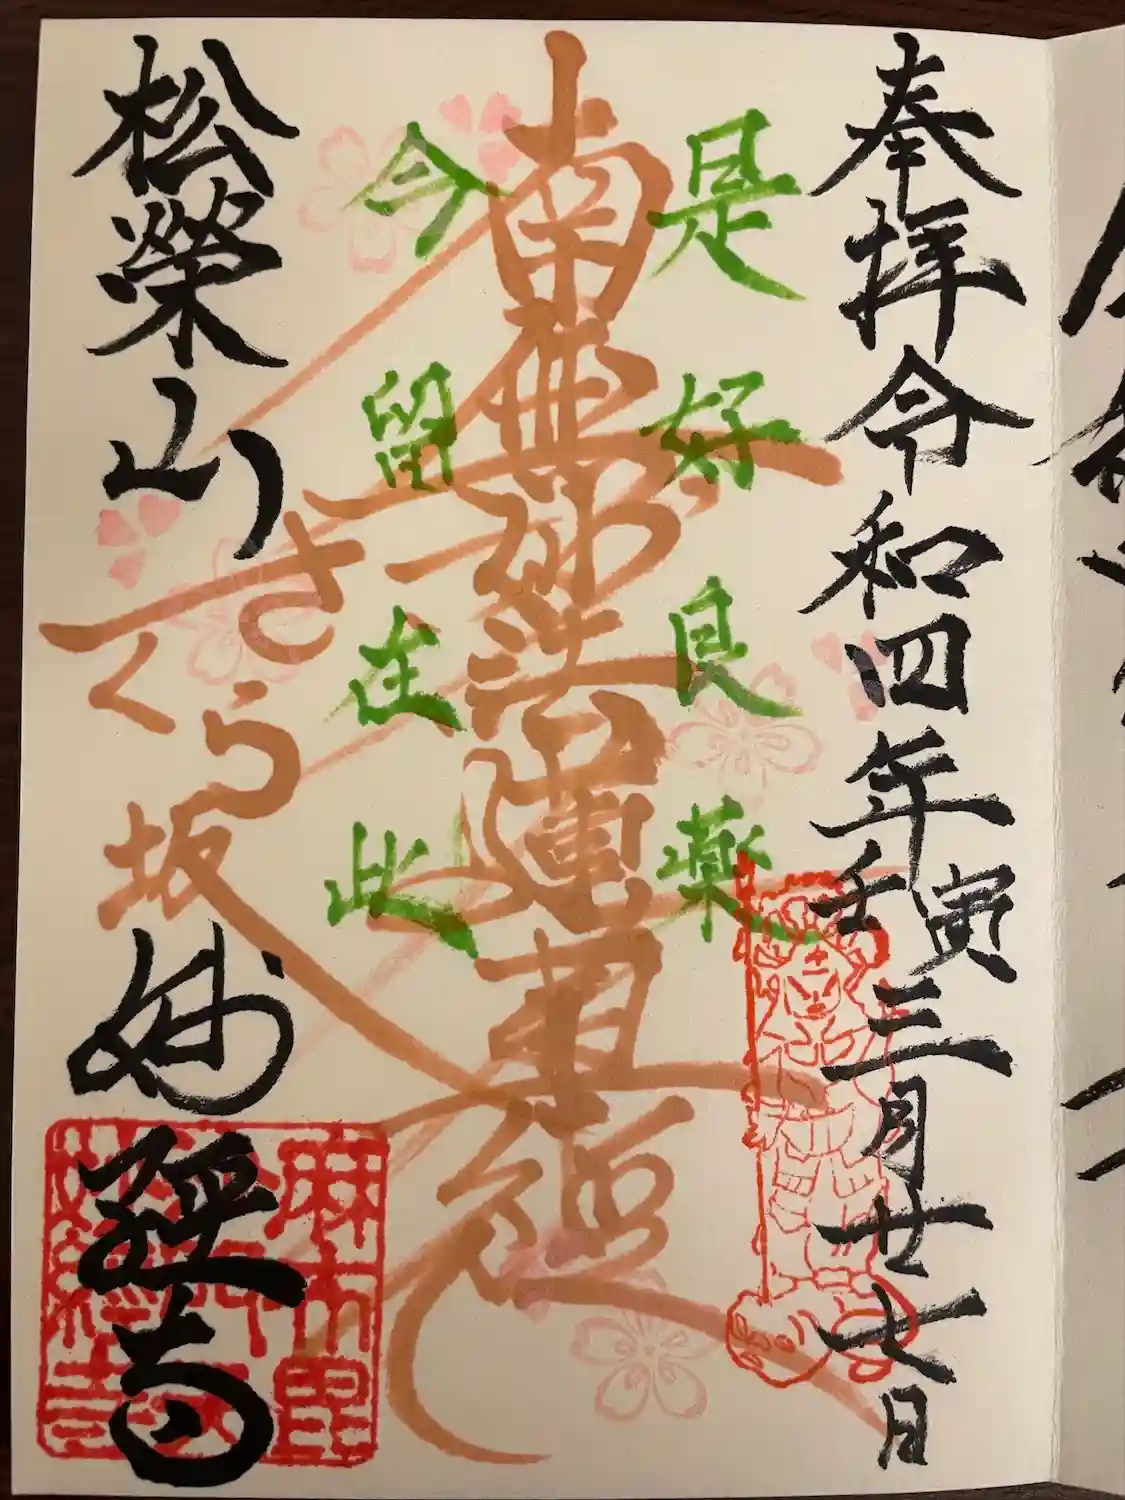 奉拝令和四年壬寅三月廿七日
是好良薬
南無妙法蓮華経
今留在此
松榮山
さくら坂
妙經寺